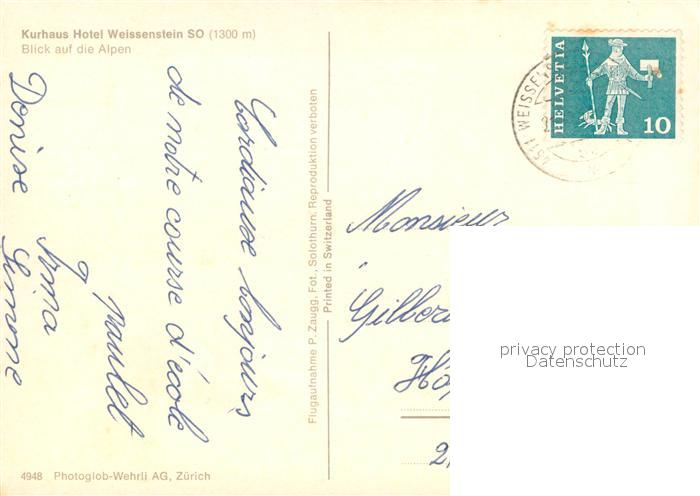 Kurhaus Hotel Weissenstein SO (1300 m)
Blick auf die Alpen
Cordiause bonjours
de notre course d'école
Paulet
Irma
Denise Simone
Flugaufnahme P. Zaugg, Fot., Solothurn. Reproduktion verboten
Printed in Switzerland
4948 Photoglob-Wehrli AG, Zürich
4511 WEISSEN
HELVETIA
10
Monsieur
Gilber
Hô
2
privacy protection
Datenschutz